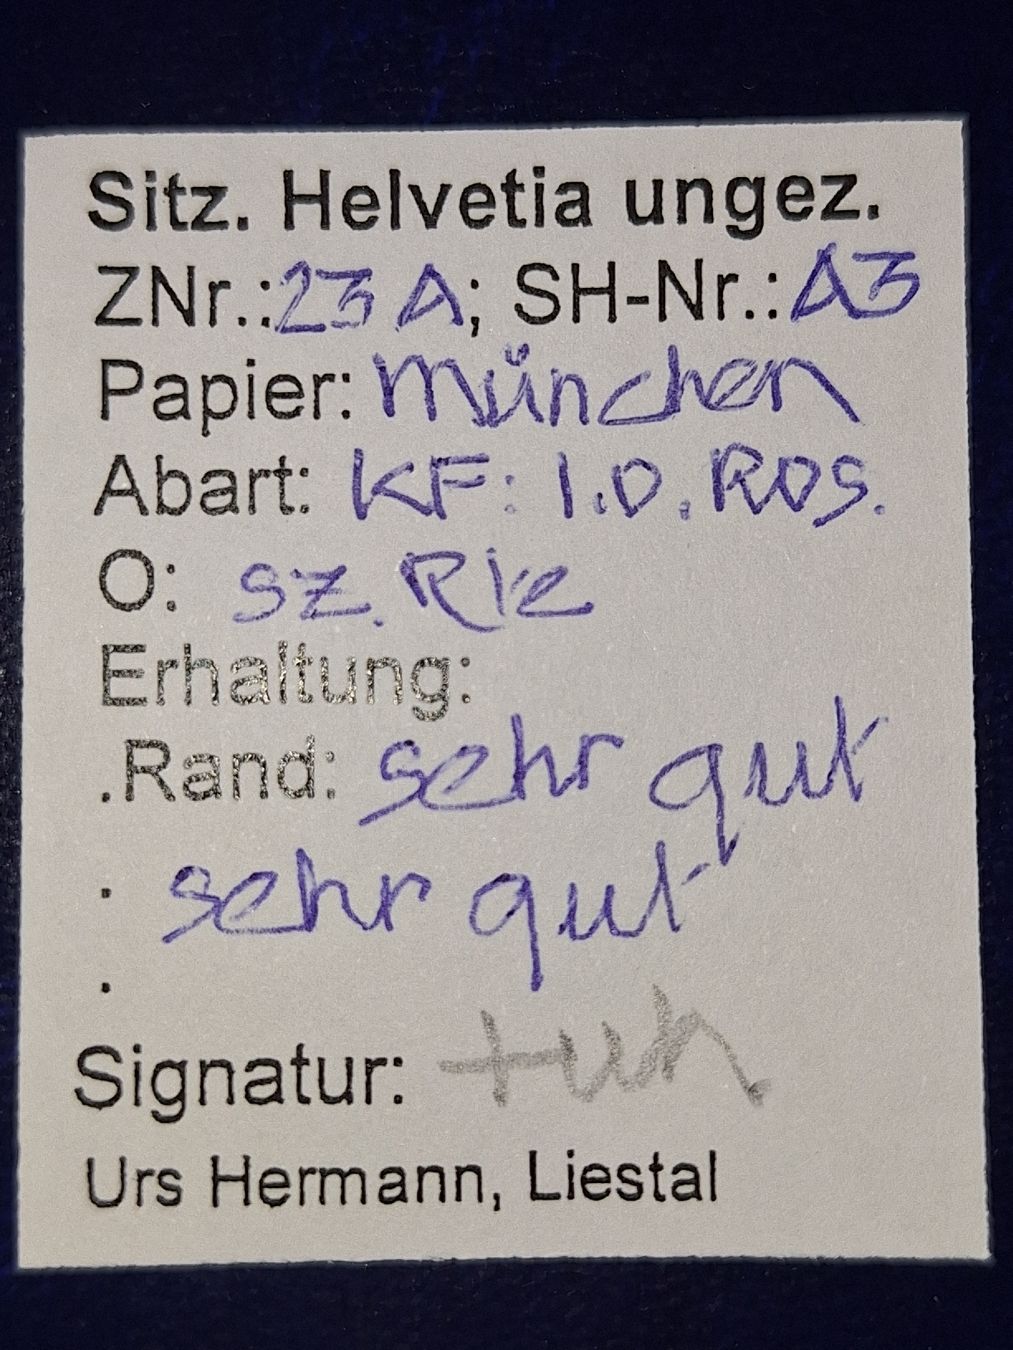 Sitz. Helvetia ungez.
ZNr.: 23 A; SH-Nr.: A3
Papier: München
Abart: KF: 1.O.Ros.
O: sz. Rie
Erhaltung:
.Rand: sehr gut
. sehr gut
.
Signatur: +uh.
Urs Hermann, Liestal